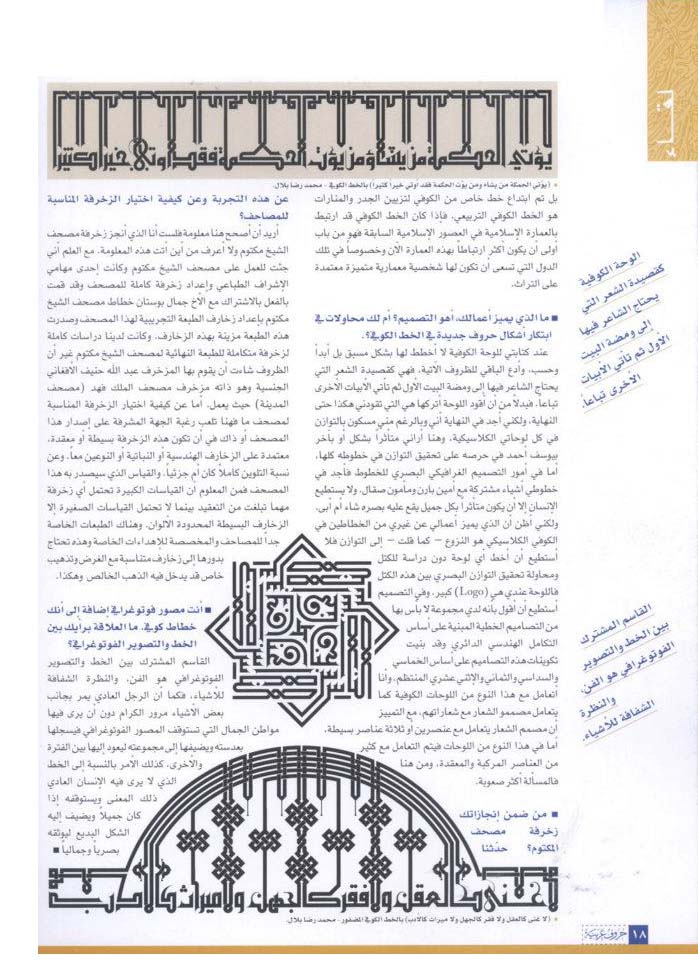 لقاء
يؤتي الحكمة من يشاء ومن يؤت الحكمة فقد اوتي خيرا كثيرا
(يؤتي الحمكة من يشاء ومن يؤت الحكمة فقد اوتي خيرا كثيرا) بالخط الكوفي - محمد رضا بلال.
بل تم ابتداع خط خاص من الكوفي لتزيين الجدر والمنارات
هو الخط الكوفي التربيعي. فإذا كان الخط الكوفي قد ارتبط
بالعمارة الإسلامية في العصور الإسلامية السابقة فهو من باب
أولى أن يكون أكثر ارتباطاً بهذه العمارة الآن وخصوصاً في تلك
الدول التي تسعى أن تكون لها شخصية معمارية متميزة معتمدة
على التراث.
■ ما الذي يميز أعمالك، أهو التصميم؟ أم لك محاولات في
ابتكار أشكال حروف جديدة في الخط الكوفي؟.
عند كتابتي للوحة الكوفية لا أخطط لها بشكل مسبق بل أبدأ
وحسب، وأدع الباقي للظروف الآتية، فهي كقصيدة الشعر التي
يحتاج الشاعر فيها إلى ومضة البيت الأول ثم تأتي الأبيات الأخرى
تباعاً. فبدلاً من أن أقود اللوحة أتركها هي التي تقودني هكذا حتى
النهاية، ولكني أجد في النهاية أني وبالرغم مني مسكون بالتوازن
في كل لوحاتي الكلاسيكية، وهنا أراني متأثراً بشكل أو بآخر
بيوسف أحمد في حرصه على تحقيق التوازن في خطوطه كلها،
أما في أمور التصميم الغرافيكي البصري للخطوط فأجد في
خطوطي أشياء مشتركة مع أمين بارن ومأمون صقال. ولا يستطيع
الإنسان إلا أن يكون متأثراً بكل جميل يقع عليه بصره شاء أم أبى.
ولكني أظن أن الذي يميز أعمالي عن غيري من الخطاطين في
الكوفي الكلاسيكي هو النزوع – كما قلت – إلى التوازن فلا
أستطيع أن أخط أي لوحة دون دراسة للكتل
ومحاولة تحقيق التوازن البصري بين هذه الكتل
فاللوحة عندي هي (Logo) كبير. وفي التصميم
أستطيع أن أقول بأنه لدي مجموعة لا بأس بها
من التصاميم الخطية المبنية على أساس
التكامل الهندسي الدائري وقد بنيت
تكوينات هذه التصاميم على أساس الخماسي
والسداسي والثماني والإثني عشري المنتظم، وأنا
أتعامل مع هذا النوع من اللوحات الكوفية كما
يتعامل مصممو الشعار مع شعاراتهم، مع التمييز
أن مصمم الشعار يتعامل مع عنصرين أو ثلاثة عناصر بسيطة.
أما في هذا النوع من اللوحات فيتم التعامل مع كثير
من العناصر المركبة والمعقدة، ومن هنا
فالمسألة أكثر صعوبة.
■ من ضمن إنجازاتك
زخرفة مصحف
المكتوم؟ حدثنا
عن هذه التجربة وعن كيفية اختيار الزخرفة المناسبة
للمصاحف؟
أريد أن أصحح هنا معلومة فلست أنا الذي أنجز زخرفة مصحف
الشيخ مكتوم ولا أعرف من أين أتت هذه المعلومة. مع العلم أني
جئت للعمل على مصحف الشيخ مكتوم وكانت إحدى مهامي
الإشراف الطباعي وإعداد زخرفة كاملة للمصحف وقد قمت
بالفعل بالاشتراك مع الأخ جمال بوستان خطاط مصحف الشيخ
مكتوم بإعداد زخارف الطبعة التجريبية لهذا المصحف وصدرت
هذه الطبعة مزينة بهذه الزخارف، وكانت لدينا دراسات كاملة
لزخرفة متكاملة للطبعة النهائية لمصحف الشيخ مكتوم غير أن
الظروف شاءت أن يقوم بها المزخرف عبد الله حنيف الأفغاني
الجنسية وهو ذاته مزخرف مصحف الملك فهد (مصحف
المدينة) حيث يعمل. أما عن كيفية اختيار الزخرفة المناسبة
لمصحف ما فهنا تلعب رغبة الجهة المشرفة على إصدار هذا
المصحف أو ذاك في أن تكون هذه الزخرفة بسيطة أو معقدة،
معتمدة على الزخارف الهندسية أو النباتية أو النوعين معاً، وعن
نسبة التلوين كاملاً كان أم جزئياً، والقياس الذي سيصدر به هذا
المصحف فمن المعلوم أن القياسات الكبيرة تحتمل أي زخرفة
مهما تبلغت من التعقيد بينما لا تحتمل القياسات الصغيرة إلا
الزخارف البسيطة المحدودة الألوان. وهناك الطبعات الخاصة
جداً للمصاحف والمخصصة للإهداءات الخاصة وهذه تحتاج
بدورها إلى زخارف متناسبة مع الغرض وتذهيب
خاص قد يدخل فيه الذهب الخالص وهكذا.
■ أنت مصور فوتوغرافي إضافة إلى أنك
خطاط كوفي. ما العلاقة برأيك بين
الخط والتصوير الفوتوغرافي؟
القاسم المشترك بين الخط والتصوير
الفوتوغرافي هو الفن، والنظرة الشفافة
للأشياء، فكما أن الرجل العادي يمر بجانب
بعض الأشياء مرور الكرام دون أن يرى فيها
مواطن الجمال التي تستوقف المصور الفوتوغرافي فيسجلها
بعدسته ويضيفها إلى مجموعته ليعود إليها بين الفترة
والأخرى، كذلك الأمر بالنسبة إلى الخط
الذي لا يرى فيه الإنسان العادي
ذلك المعنى ويستوقفه إذا
كان جميلاً ويضيف إليه
الشكل البديع ليوثقه
بصرياً وجمالياً ■
الوحة الكوفية
كقصيدة الشعر التي
يحتاج الشاعر فيها
إلى ومضة البيت
الأول ثم تأتي الأبيات
الأخرى تباعاً.
القاسم المشترك
بين الخط والتصوير
الفوتوغرافي هو الفن،
والنظرة
الشفافة للأشياء.
لا غنى كالعقل ولا فقر كالجهل ولا ميراث كالادب
(لا غنى كالعقل ولا فقر كالجهل ولا ميراث كالادب) بالخط الكوفي المضفور - محمد رضا بلال.
١٨ حروف عربية